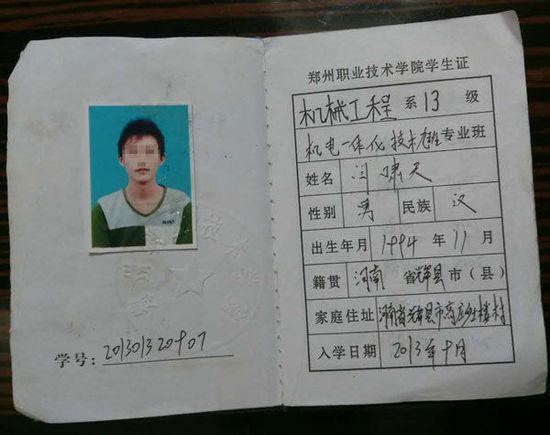 郑州职业技术学院学生证
机械工程 系 13 级
机电一体化技术 专业班
姓名 闫啸天
性别 男 民族 汉
出生年月 1994 年 11 月
籍贯 河南 省辉县市(县)
家庭住址 河南省辉县市 村
入学日期 2013年9月
学号:201301320907